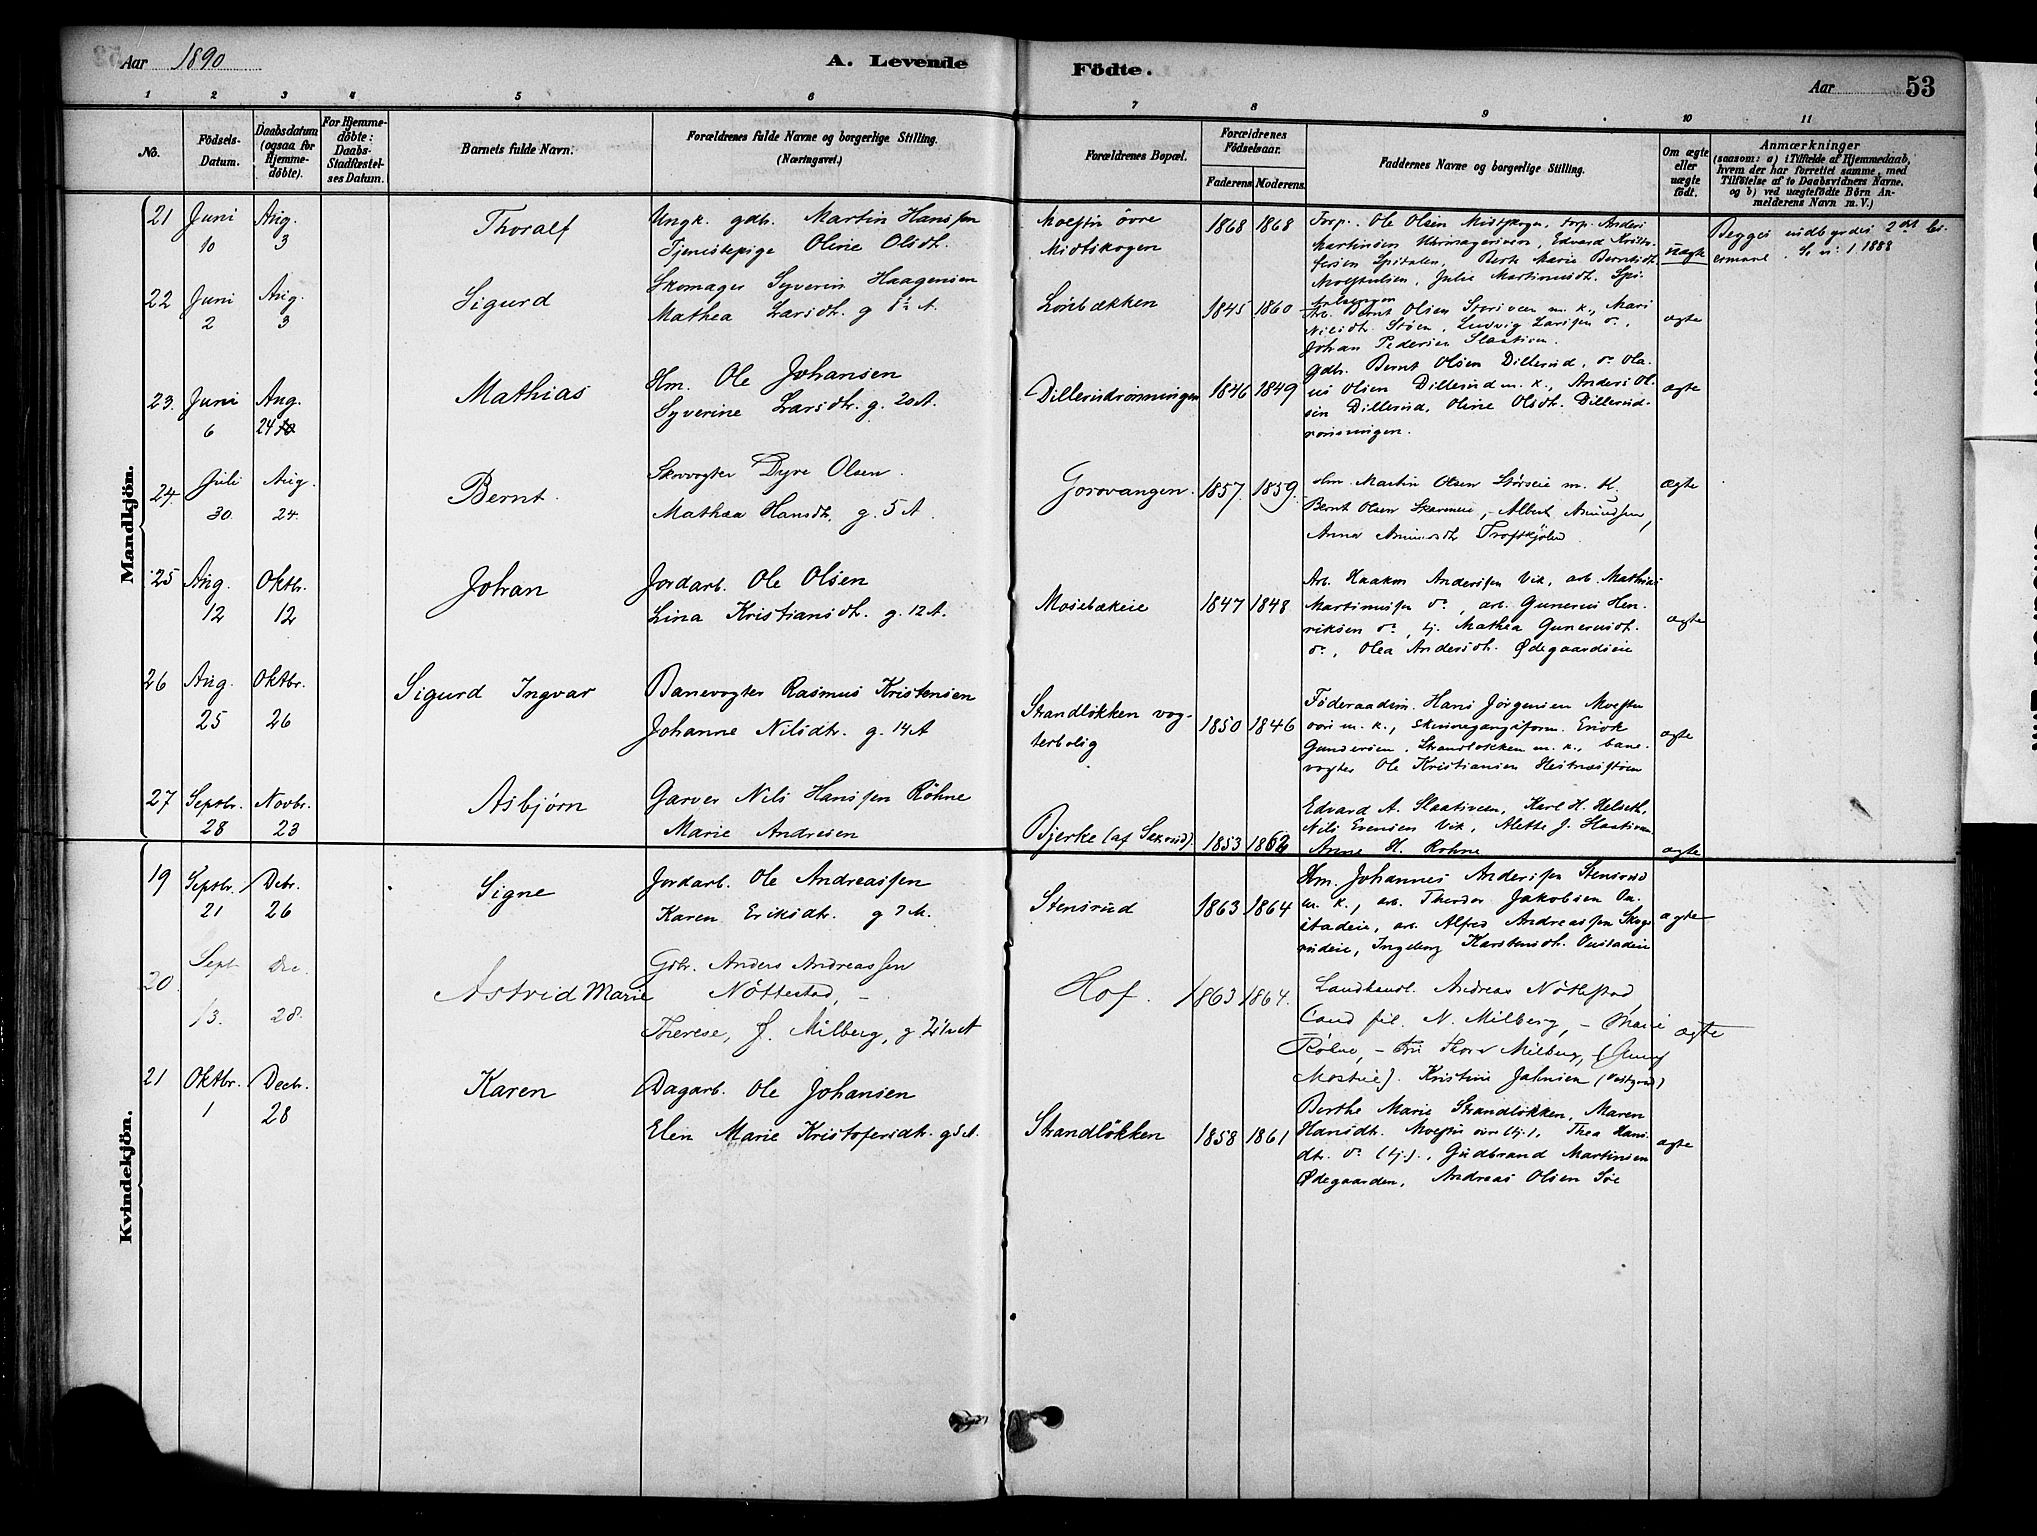 Aar 1890
A. Levende
Födte.
Aar
53
1 2 3 4 5 6 7 8 9 10 11
No.
Födsels-Datum.
Daabsdatum (ogsaa for Hjemmedøbte).
For Hjemmedøbte: Daabs-Stadfæstelses Datum.
Barnets fulde Navn.
Forældrenes fulde Navne og borgerlige Stilling. (Næringsvei.)
Forældrenes Bopæl.
Forældrenes Födselsaar.
Faderens
Moderens
Faddernes Navne og borgerlige Stilling.
Om ægte eller uægte født.
Anmærkninger
(saasom: a) i Tilfælde af Hjemmedaab, hvem der har forrettet samme, med Tilföielse af to Daabsvidners Navne, og b) ved uægtefödte Börn Anmelderens Navn m. V.)
Mandkjön.
21 Juni 10 Aug. 3 Thoralf
Ungk. gdb. Martin Hanssen
Tjenestepige Oline Olsdt.
Moestu övre
Midtskogen
1868 1868
Ole Olsen Midtskogen, Anders
Martinsen, Edvard Kristo-
fersen Spitalen, Berte Marie Berntsdt.
Julie Martinusdt.
uægte
Begges indbyrdes 2det
1888
22 Juni 2 Aug. 3 Sigurd
Skomager Syverin Haagensen
Mathea Larsdt. g 8½ A.
Lönbækken
1845 1860
Arb. Bernt Olsen m. k., Mari
Nilsdt. Stöen, Ludvig Larsen do.,
Johan Pedersen Slaatsveen.
ægte
23. Juni 6 Aug. 24 Mathias
Hm. Ole Johansen
Syverine Larsdtr. g. 20 A.
Dillerudrønningen
1846 1849
Gdb. Bernt Olsen Dillerud, do Ola-
us Olsen Dillerud m. k., Anders Ol-
sen Dillerud, Oline Olsdt. Dillerud-
rønningen.
ægte
24. Juli 30. Aug. 24. Bernt.
Skovvogter Dyre Olsen.
Mathea Hansdt. g. 5 A.
Gorovangen.
1857. 1859.
Hm. Martin Olsen m. K.
Bernt Olsen, Albert Amundsen,
Anna Amundsdt.
ægte
25 Aug. 12 Oktbr. 12 Johan
Jordarb. Ole Olsen
Lina Kristiansdt. g. 12 A.
Mosebækeie
1847 1848
Arb. Haakon Andersen Vik, arb. Mathias
Martinussen do., arb. Gunerius Hen-
riksen do., tj. Mathea Gunerusdt.
do., Olea Andersdt. Ødegaardseie
ægte
26 Aug. 25 Oktbr. 26 Sigurd Ingvar
Banevogter Rasmus Kristensen
Johanne Nilsdtr. g. 14 A
Strandløkken vog-
terbolig
1850 1846
Föderaadsm. Hans Jörgensen Moestu
övre m. k., skinnegangsform. Enok
Gundersen Strandløkken m. k., bane-
vogter Ole Kristiansen
ægte
27 Septbr. 28 Novbr. 23 Asbjørn
Garver Nils Hanssen Röhne
Marie Andresen
Bjerke (af Saxrud).
1853 1862
Edvard A. Slaatsveen, Karl H. Helseth,
Nils Evensen Vik, Alette J. Slaatsveen
Anne H. Rohne
ægte
Kvindekjön.
19 Septbr. 21 Debr. 26 Signe
Jordarb. Ole Andreassen
Karen Eriksdtr. g 7 A.
Stensrud
1863 1864
Hm. Johannes Andersen Stensrud
m. k., arb. Theodor Jakobsen On-
stadeie, arb. Alfred Andreassen Skogs-
rudeie, Ingeborg Karstensdt. Onstadeie
ægte
20. Sept 13. Dec. 28. Astrid Marie
Gdbr. Anders Andreassen
Nöttestad, -
Therese, J. Milberg, g. 2½ A
Hof.
1863 1864.
Landhandl. Andreas Nöttestad
Cand fil. N. Milberg, - Marie
Röhne, - Thora Milberg,
Kristine Jahnsen
ægte
21 Oktbr. 1 Decbr. 28 Karen
Dagarb. Ole Johansen
Elen Marie Kristofersdtr. g 5 A.
Strandløkken
1858 1861
Berthe Marie Strandløkken, Maren
Hansdt. Moestu övre (tj.), Thea Hans-
dtr. do (tj.), Gudbrand Martinsen
Ødegaarden, Andreas Olsen Söe
ægte